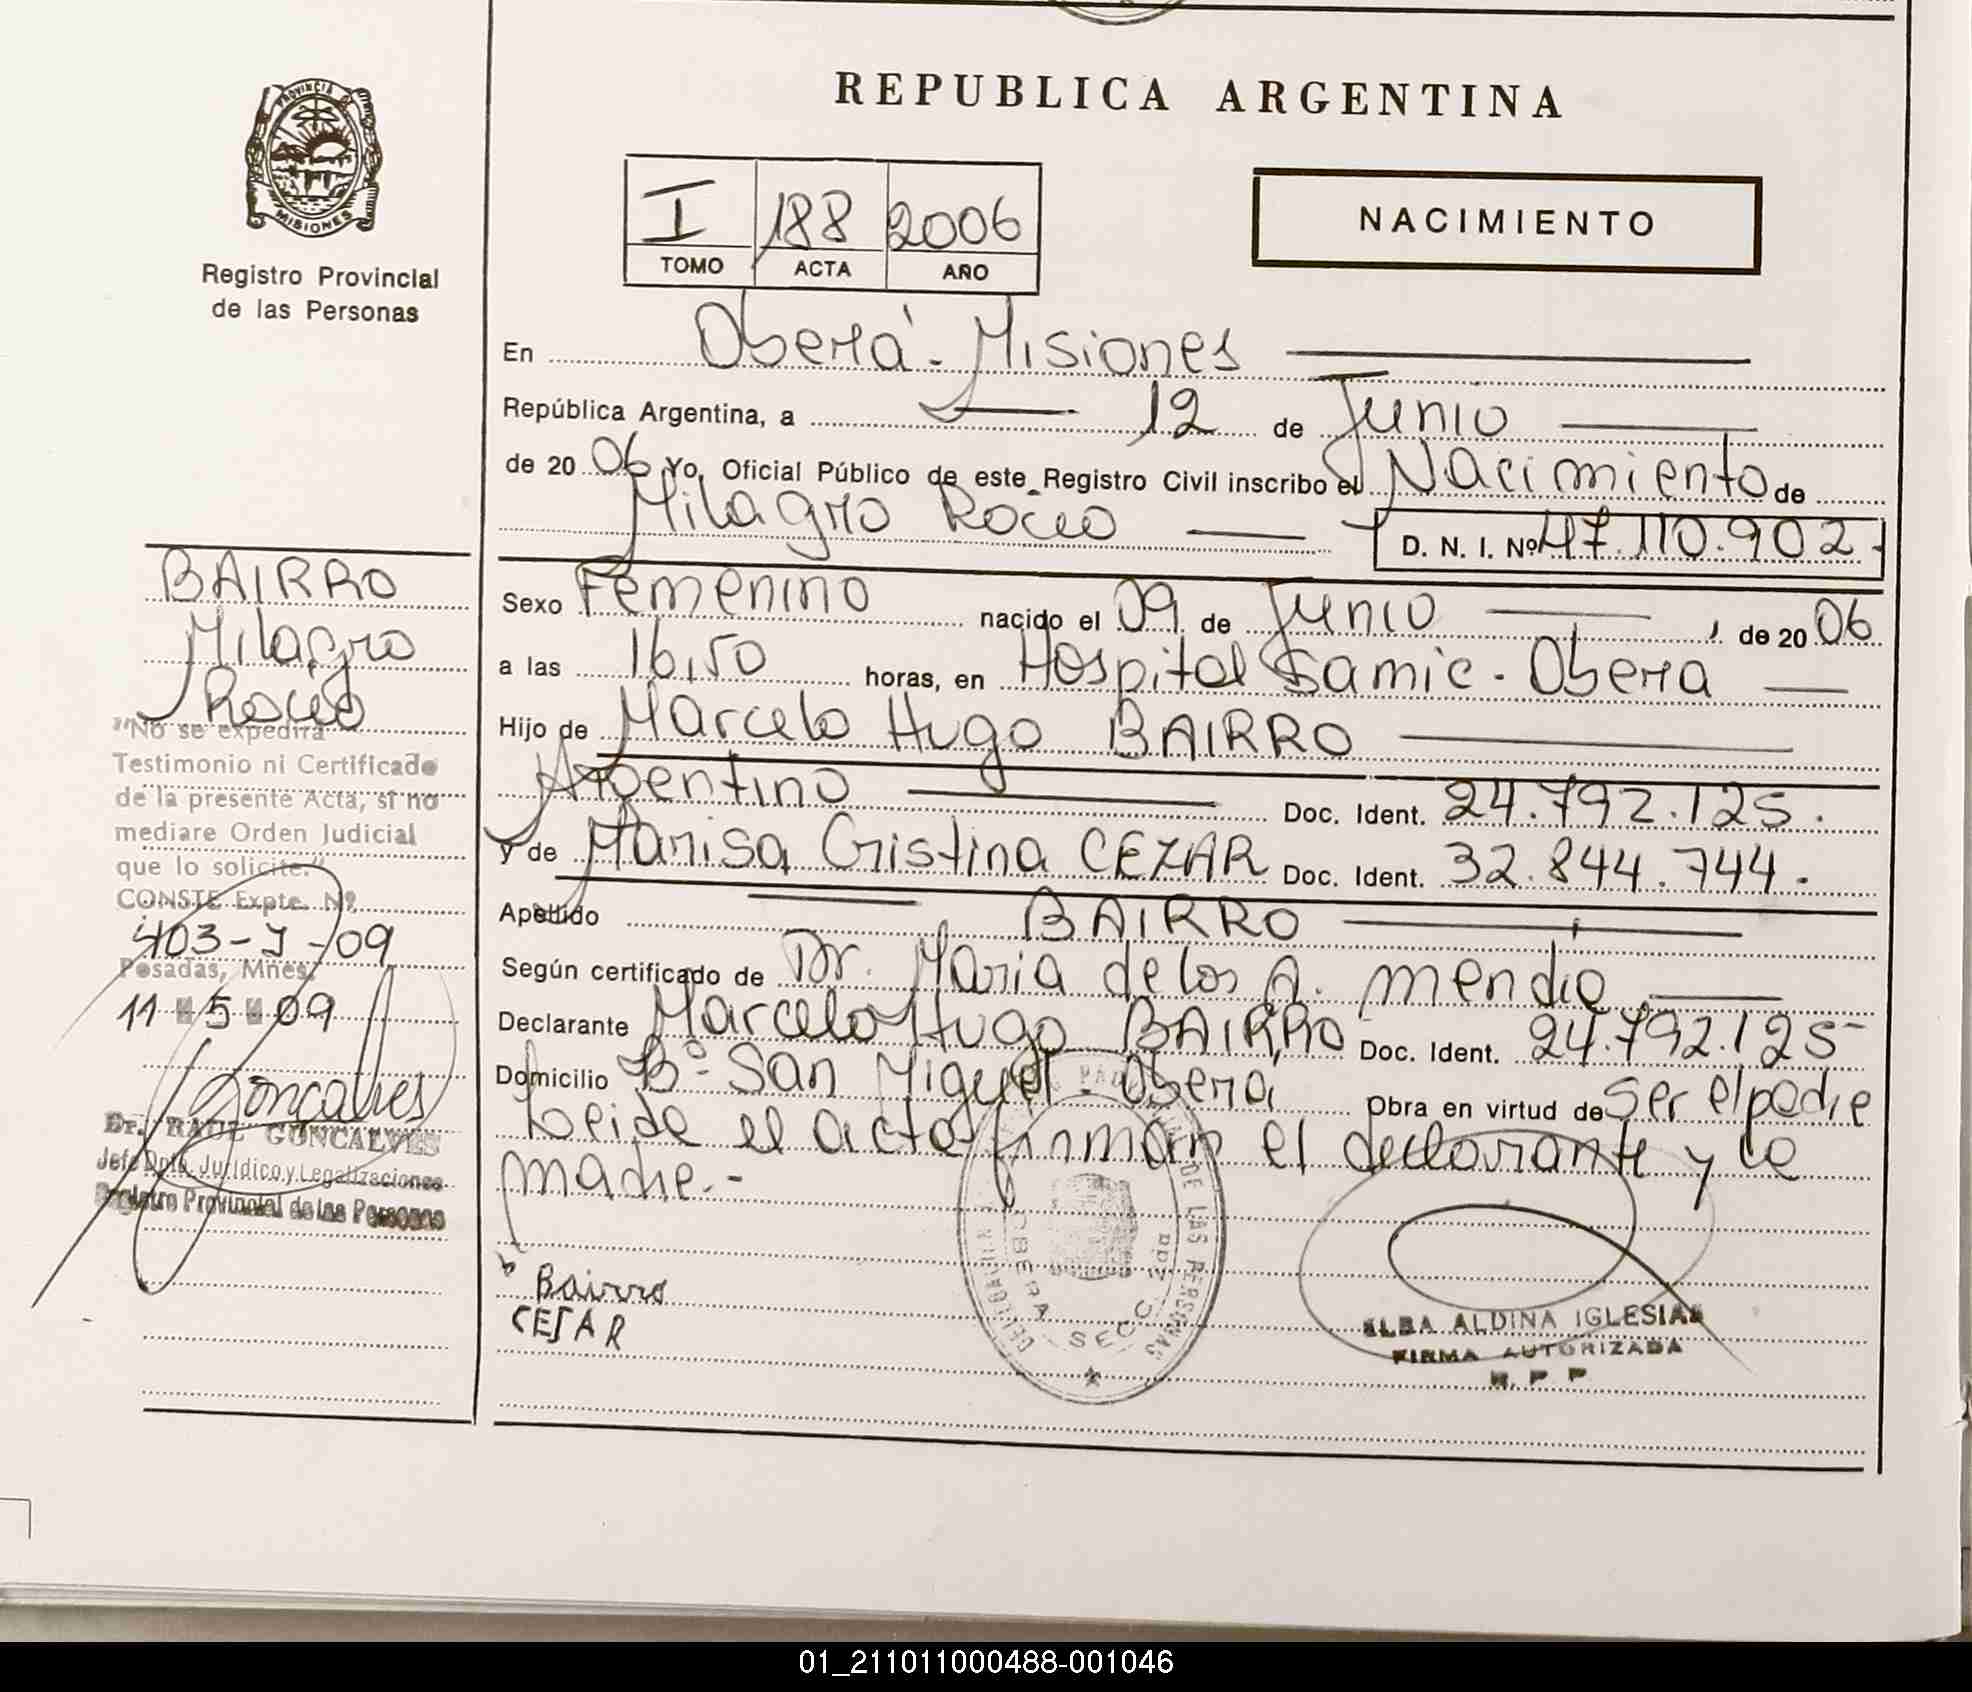 REPUBLICA ARGENTINA
PROVINCIA DE
MISIONES
Registro Provincial
de las Personas
I 188 2006
TOMO ACTA AÑO
NACIMIENTO
En Oberá - Misiones
República Argentina, a 12 de Junio
de 2006 Yo, Oficial Público de este Registro Civil inscribo el Nacimiento de
Milagro Rocio D. N. I. Nº 47.110.902.
Sexo Femenino nacido el 09 de Junio, de 2006
a las 16,50 horas, en Hospital Samic - Obera
Hijo de Marcelo Hugo BAIRRO
Argentino Doc. Ident. 24.792.125.
y de Marisa Cristina CEZAR Doc. Ident. 32.844.744.
Apellido BAIRRO
Según certificado de Dr. Maria de los A. mendie
Declarante Marcelo Hugo BAIRRO Doc. Ident. 24.792.125
Domicilio Bº San Miguel - Oberá Obra en virtud de Ser el padre
Leida el acta firman el declarante y la
madre.-
Bairro
CESAR
DE LAS PERSONAS
OBERA SECC. 2da
ELBA ALDINA IGLESIAS
FIRMA AUTORIZADA
R. P. P
BAIRRO
Milagro
Rocio
"No se expedirá
Testimonio ni Certificado
de la presente Acta, si no
mediare Orden Judicial
que lo solicite."
CONSTE Expte. Nº
403-J-09
Posadas, Mnes,
11 5 09
Goncalves
Dr. RAUL GONCALVES
Jefe Dpto. Jurídico y Legalizaciones
Registro Provincial de las Personas
01_211011000488-001046